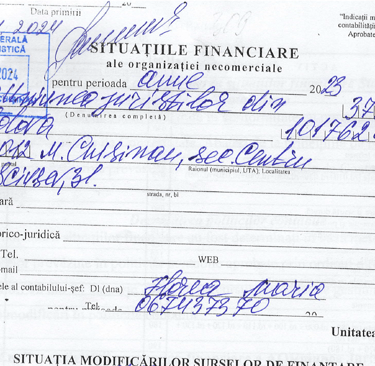 2024
Data primirii
"Indicații m
contabilități
Aprobate
ERALĂ
ISTICĂ
2024
SITUAȚIILE FINANCIARE
ale organizației necomerciale
pentru perioada anne 2023
juriștilor din 37
(Denumirea completă) 101762
M. Chișinău, sec. Centru
Raional (municipiul, UTA), Localitatea
31.
strada, nr, bl
ară
orico-juridică
Tel. WEB
-mail
ele al contabilului-șef: Dl (dna) Florea Maria
Tel: 067437370 20
Unitatea
SITUAȚIA MODIFICĂRILOR SURSELOR DE FINANȚARE